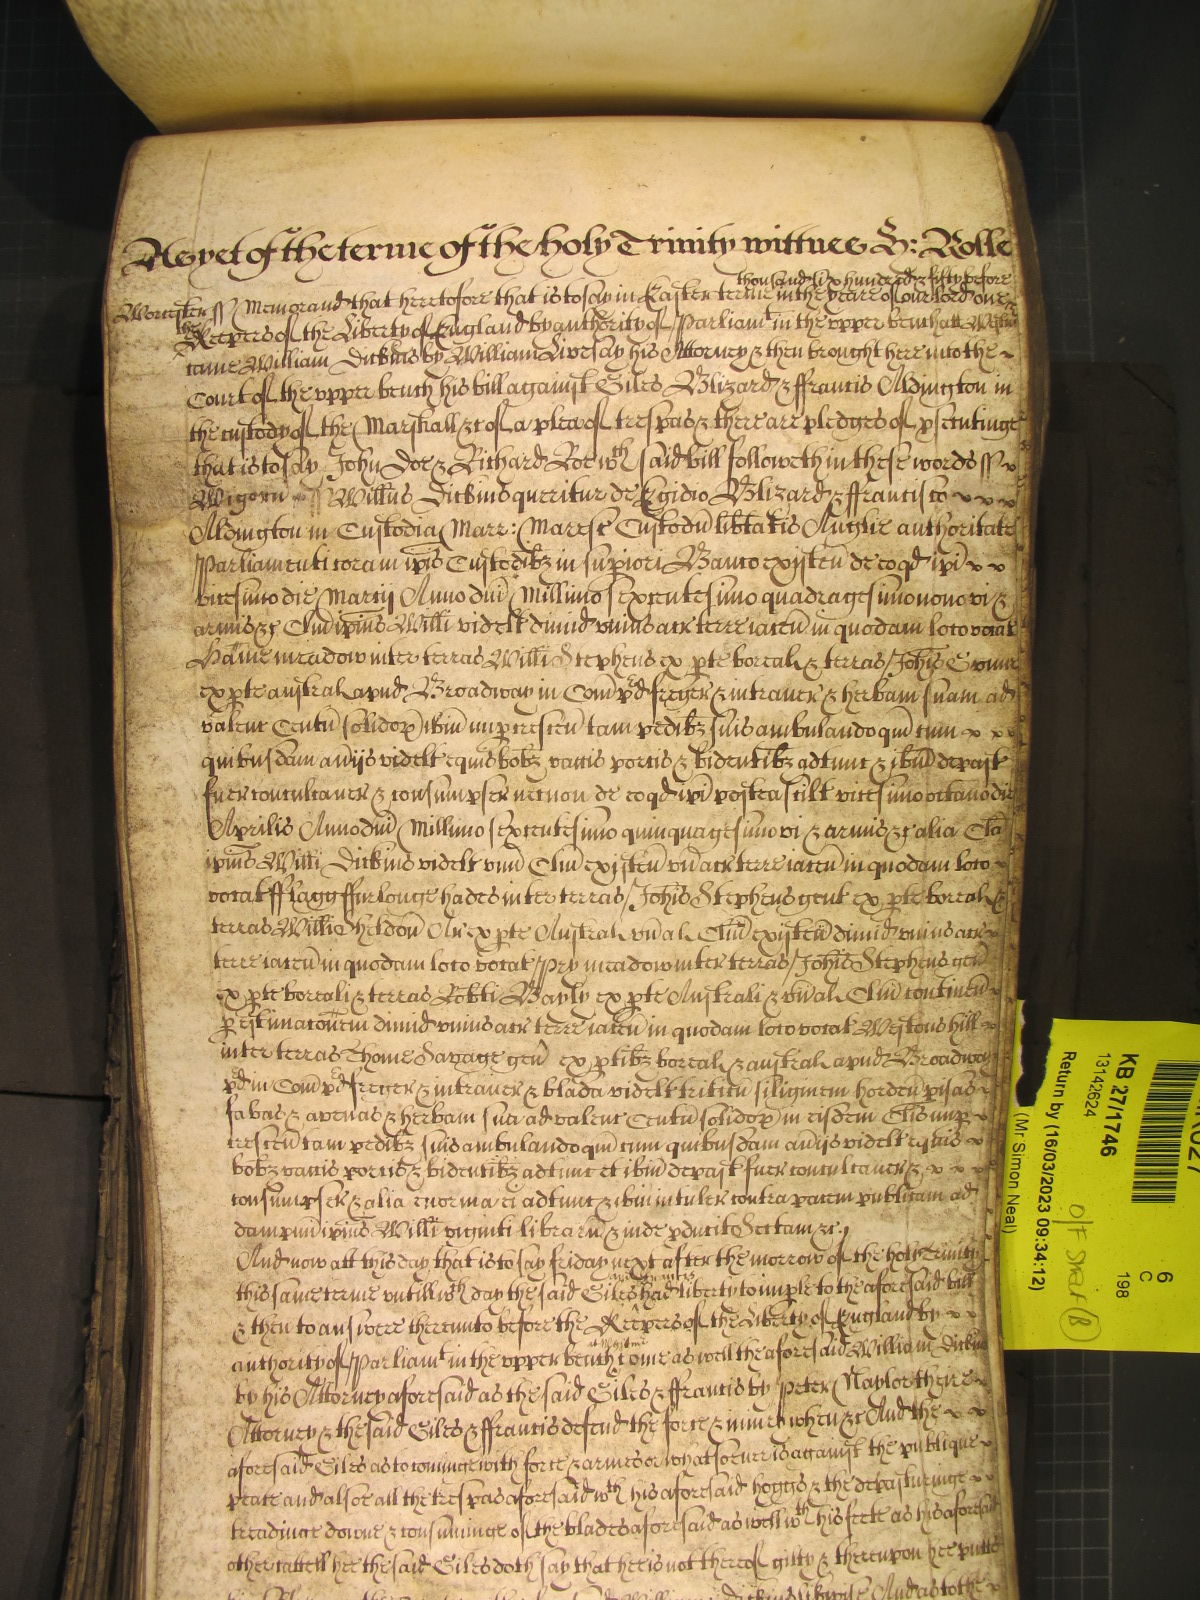 As yet of the terme of the holy Trinity wittnes H: Rolle
thousand six hundred & fifty before
Worcester ss Memorand that heretofore that is to say in Easter terme in the yeare of our Lord one
the
Keepers of the Liberty of England by authority of Parliamt in the upper bench att Westmr
came William Dickins by William Livesay his Attorney & then brought here into the
Court of the upper bench his bill against Giles Blizard & ffrancis Aldington in
the custody of the Marshall &c of a plea of trespas & there are pledges of psecutinge
that is to say John Doe & Richard Roe wch said bill followeth in these words ss
Wigorn ss Willus Dickins queritur de Egidio Blizard & ffrancisco
Aldington in Custodia Marr: Maresc Custodu libtatis Anglie authoritate
Parliamenti coram ipis Custodibz in supiori Banco existen de eo qd ipi
vicesimo die Marcij Anno dni Millimo sexcentesimo quadragesimo nono vi &
armis &c Clm ipius Willi videlt dimid unius acr terre iacen in quodam loco vocat
Hame meadow inter terras Willi Stephens ex pte boreal & terras Johis
ex pte austral apud Broadway in Com pd freger & intraver & herbam suam ad
valenc Centu solidor ibm nup crescen tam pedibz suis ambulando qm cum
quibusdam aviijs videlt equis bobz vaccis porcis & bidentibz adtunc & ibm depast
fuer conculcaver & consumpser necnon de eo qd ipi postea scilt vicesimo octavo die
Aprilis Anno dni Millimo sexcentesimo quinquagesimo vi & armis &c alia Cla
ipius Willi Dickins videlt unu Clm existen un acr terre iacen in quodam loco
vocat fflagg ffurlonge hades inter terras Johis Stephens gent ex pte boreal &
terras Willi Sheldon Ar ex pte Austral un al Clm existen dimid unius acr
terre iacen in quodam loco vocat Pry meadow inter terras Johis Stephens gen
ex pte boreali & terras Robti Bayly ex pte Australi & un al Clm continen
p estimaconem dimid unius acr terre iacen in quodam loco vocat Westons hill
inter terras Thome Savage gen ex ptibz boreal & austral apud Broadway
pd in Com pd freger & intraver & blada videlt triticu siliginem hordeu pisas
fabas & avenas & herbam sua ad valenc Centu solidor in eisdem Clis nup
crescen tam pedibz suis ambulando qm cum quibusdam aviijs videlt equis
bobz vaccis porcis & bidentibz adtunc et ibm depast fuer conculcaver &
consumpser & alia enormia ei adtunc & ibm intuler contra pacem publicam ad
dampnu ipius Willi viginti librar & inde pducit Sectam &c
And now att this day that is to say friday next after the morrow of the holy Trinity
and ffrancis
this same terme untill wch day the said Giles had liberty to imple to the aforesaid bill
& then to answere thereunto before the Keepers of the Liberty of England by
att Westmr
authority of Parliamt in the upper bench come as well the aforesaid William Dickins
by his Attorney aforesaid as the said Giles & ffrancis by Peter Naylor theire
Attorney & the said Giles & ffrancis defend the force & iniury when &c And the
aforesaid Giles as to cominge with force & armes or whatsoever is against the publique
peace and alsoe all the trespas aforesaid wth his aforesaid hoggs & the depasturinge
treadinge downe & consuminge of the blades aforesaid as well wth his feete as his aforesaid
other cattell hee the said Giles doth say that hee is not thereof gilty & thereupon hee putts
Dickins likewise And as to the
KB 27/1746
13142624
Return by (16/03/2023 09:34:12)
(Mr Simon Neal)
6
C
198